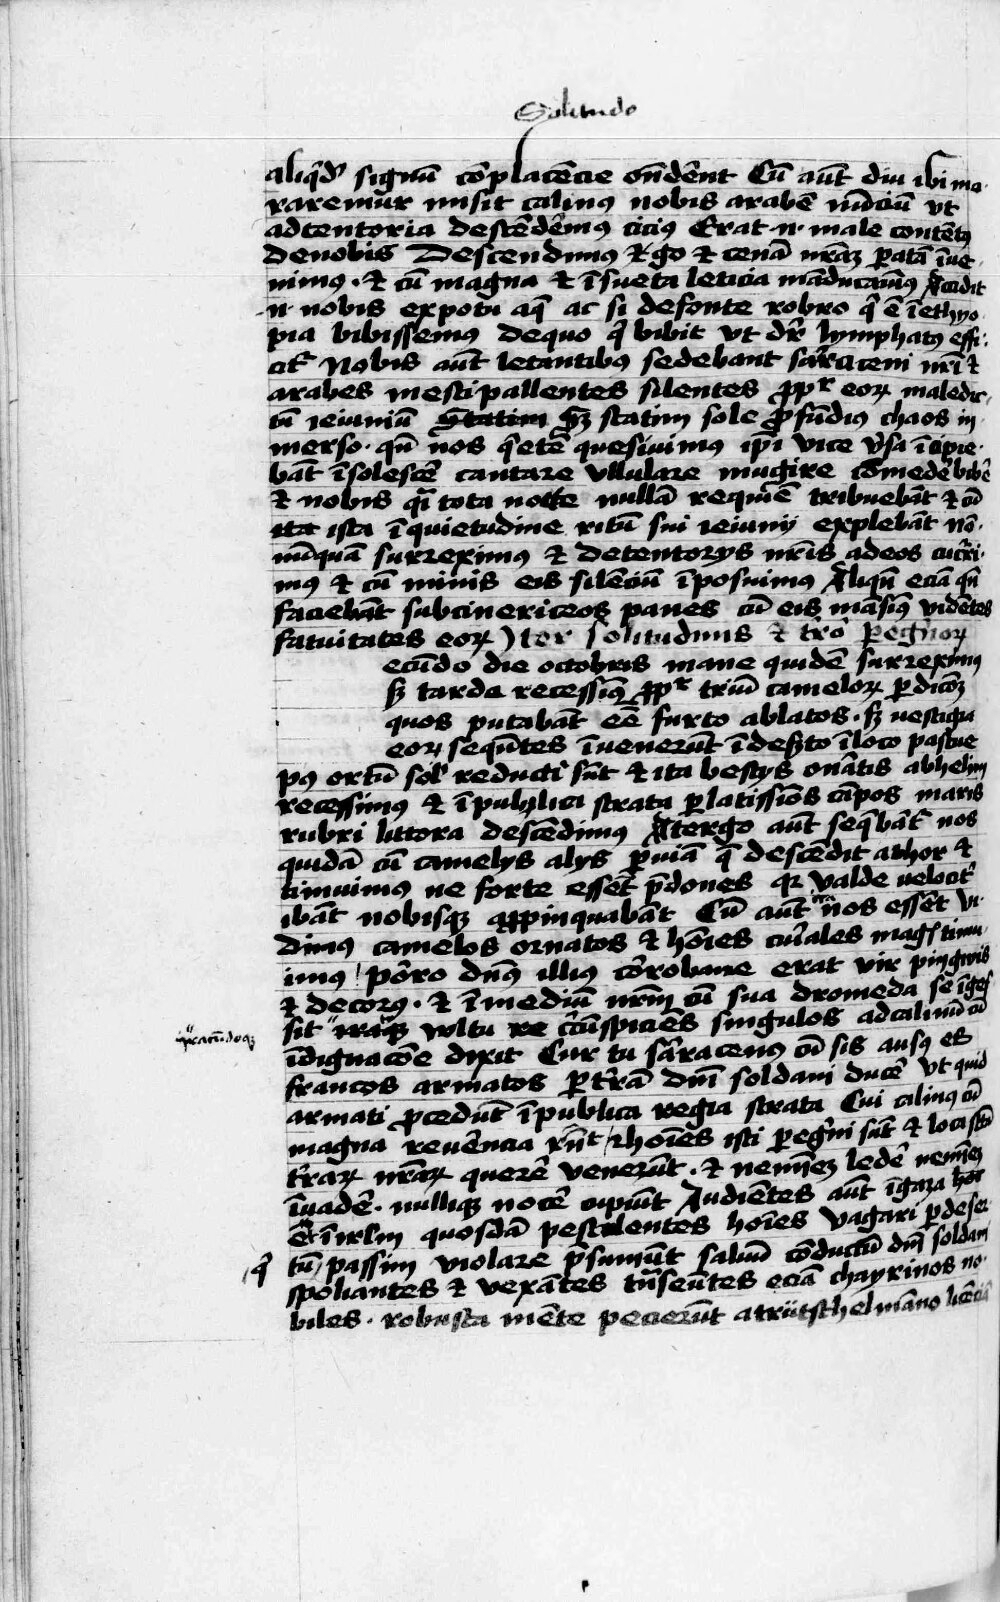 Solitudo
aliq̄d signū cōplacēcie oñdēnt Cū aūt diu ibi mo
raremur misit calinus nobis arabē nūciū vt
ad tentoria descēdēmus cicius Erat .n. male contētus
de nobis Descendimus Ergo et cenā nr̄aꝫ patā īue
nimus . et cū magna et īsueta leticia māducauimus Accidit
.n. nobis ex potu aq̄ ac si de fonte robro q̄ ē ī ethyo
pia bibissemus de quo q̄ bibit vt dr̄ lymphatus effi
cit̄ Nobis aūt letantibus sedebant sarraceni nr̄i et
arabes mesti pallentes silentes ꝓpr eoꝝ maledic
tū ieiuniū Statim sꝫ statim sole ꝓfūdius chaos in
merso . qn̄ nos q̄etē quesiuimus ip̄i vice v̄sa īcipie
bāt īsolescē cantare vllulare mugire comedē bibē
et nobis q̄i tota nocte nullā requiē tribuebāt et cū
ita ista īquietudine ritū sui ieiunij explebāt nō
nūquā surreximus et de tentorys nr̄is ad eos cucr̄ri
mus et cū minis eis silēciū īposuimus Aliqn̄ eciā qn̄
faciebāt subcinericeos panes cū eis māsimus vidētes
fatuitates eoꝝ ) Iter solitudinis et tr̄ō pegr̄inoꝝ
ecūdo die octobris mane quidē surreximus
sꝫ tarde recessimus ꝓpr triū cameloꝝ pdicōꝫ
quos putabāt eē furto ablatos . sꝫ vestigia
eoꝝ sequētes īuenerūt ī desto ī loco pascue
pꝰ ortū sol̄ reducti sūt et ita bestys on̄atis abhelim
recessimus et ī publica strata p latissimos cāpos maris
rubri littora descēdimus A tergo aūt seq̄bāt̄ nos
quidā cū camelys alys p viā q̄ descēdit athor et
timuimus ne forte essēt p̄dones qꝛ valde velocit̄
ibāt nobisqꝫ appinquabāt Cū aūt int̄ nos essēt vi
dimus camelos ornatos et hōīes cur̄ales magis timu
imus Porro dn̄us illius corobane erat vir pingwis
et decorus . et ī mediū nr̄m cū sua dromeda se īges
sit iracūdoqꝫ vultu re cc̄ūspiciēs singulos ad calinū cū
īdignacōe dixit Cur tu sarracenus cū sis ausus es
francos armatos p tr̄rā dn̄i soldani ducē vt quid
armati ꝓcedūt ī publica regia strata Cui calinus cū
magna reuēncia rn̄it hoīes isti pegr̄ini sūt et loca scā
tr̄raꝝ nr̄aꝝ querē venerūt . et neminē ledē neminē
īuadē . nulliqꝫ nocē cupiūt Audiētes aūt ī gaza hōī
ēt ī irl̄m quosdā pestilentes hoīes vagari p deser
tū passim violare p̄sumūt saluū cōductū dn̄i soldani
spoliantes et vexātes trn̄seūtes eciā chayrinos no
biles . robusta mēte pecierūt a trutschelmāno licēciā